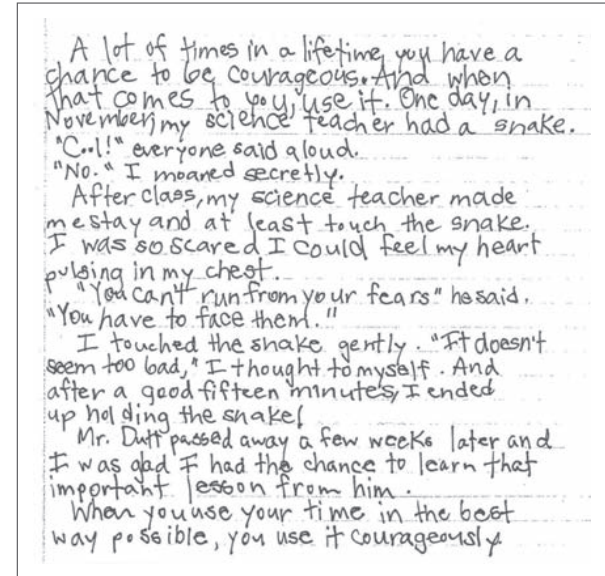 A lot of times in a lifetime, you have a
chance to be courageous. And when
that comes to you, use it. One day, in
November, my science teacher had a snake.
"C..l!" everyone said aloud.
"No." I moaned secretly.
After class, my science teacher made
me stay and at least touch the snake.
I was so scared I could feel my heart
pulsing in my chest.
"You can't run from your fears" he said.
"You have to face them."
I touched the snake gently. "It doesn't
seem too bad," I thought to myself. And
after a good fifteen minutes, I ended
up holding the snake!
Mr. Dutt passed away a few weeks later and
I was glad I had the chance to learn that
important lesson from him.
When you use your time in the best
way possible, you use it courageously